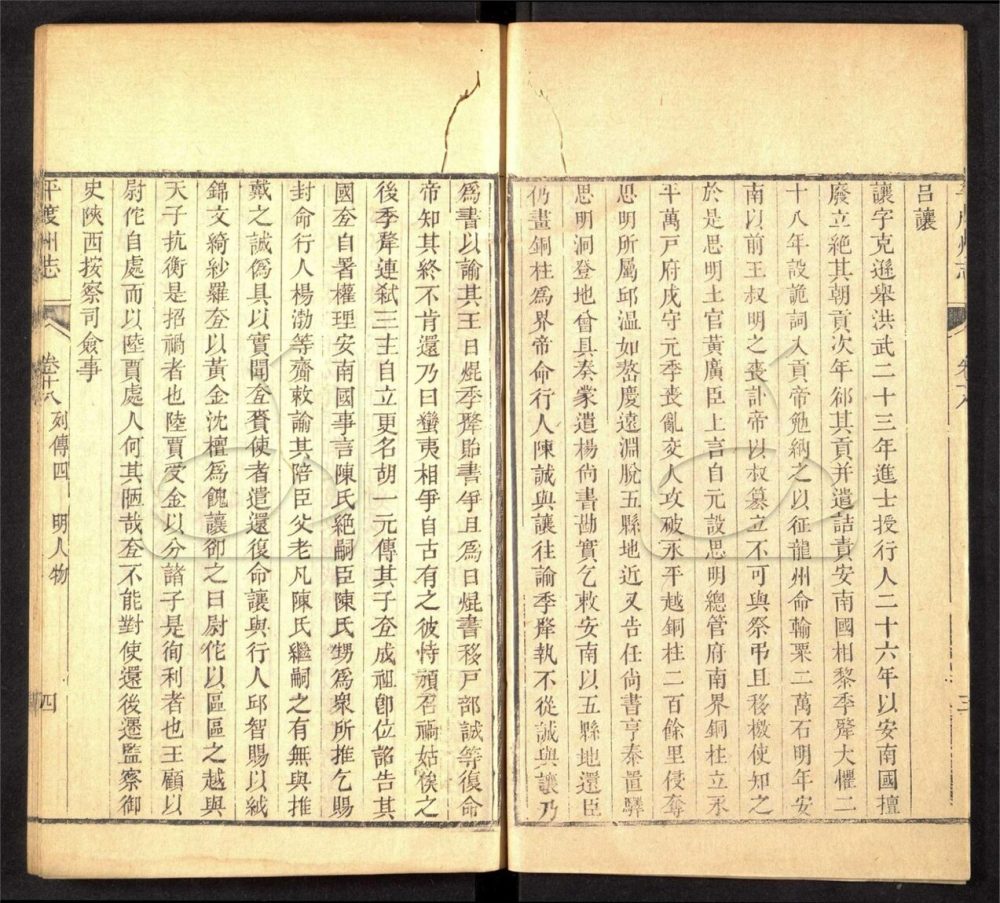 呂讓
讓字克遜舉洪武二十三年進士授行人二十六年以安南國擅
廢立絕其朝貢次年郤其貢并遣詰責安南國相黎季犛大懼二
十八年設詭詞入貢帝勉納之以征龍州命輸粟二萬石明年安
南以前王叔明之喪訃帝以叔篡立不可與祭弔且移檄使知之
於是思明土官黃廣臣上言自元設思明總管府南界銅柱立永
平萬戸府戍守元季喪亂交人攻破永平越銅柱二百餘里侵奪
思明所屬邱温如嶅慶遠淵脫五縣地近又告任尙書亨泰置驛
思明洞登地曾具奏蒙遣楊尙書勘實乞敕安南以五縣地還臣
仍畫銅柱爲界帝命行人陳誠與讓往諭季犛執不從誠與讓乃
爲書以諭其王日焜季犛貽書爭且爲日焜書移戸部誠等復命
帝知其終不肯還乃曰蠻夷相爭自古有之彼恃頑召禍姑俟之
後季犛連弒三主自立更名胡一元傳其子夻成祖卽位詔告其
國夻自署權理安南國事言陳氏絕嗣臣陳氏甥爲衆所推乞賜
封命行人楊渤等齎敕諭其陪臣父老凡陳氏繼嗣之有無與推
戴之誠僞具以實聞夻賚使者遣還復命讓與行人邱智賜以絨
錦文綺紗羅夻以黃金沈檀爲餽讓卻之曰尉佗以區區之越與
天子抗衡是招禍者也陸賈受金以分諸子是徇利者也王顧以
尉佗自處而以陸賈處人何其陋哉夻不能對使還後遷監察御
史陝西按察司僉事
平度州志
卷十八
列傳四 明人物
四